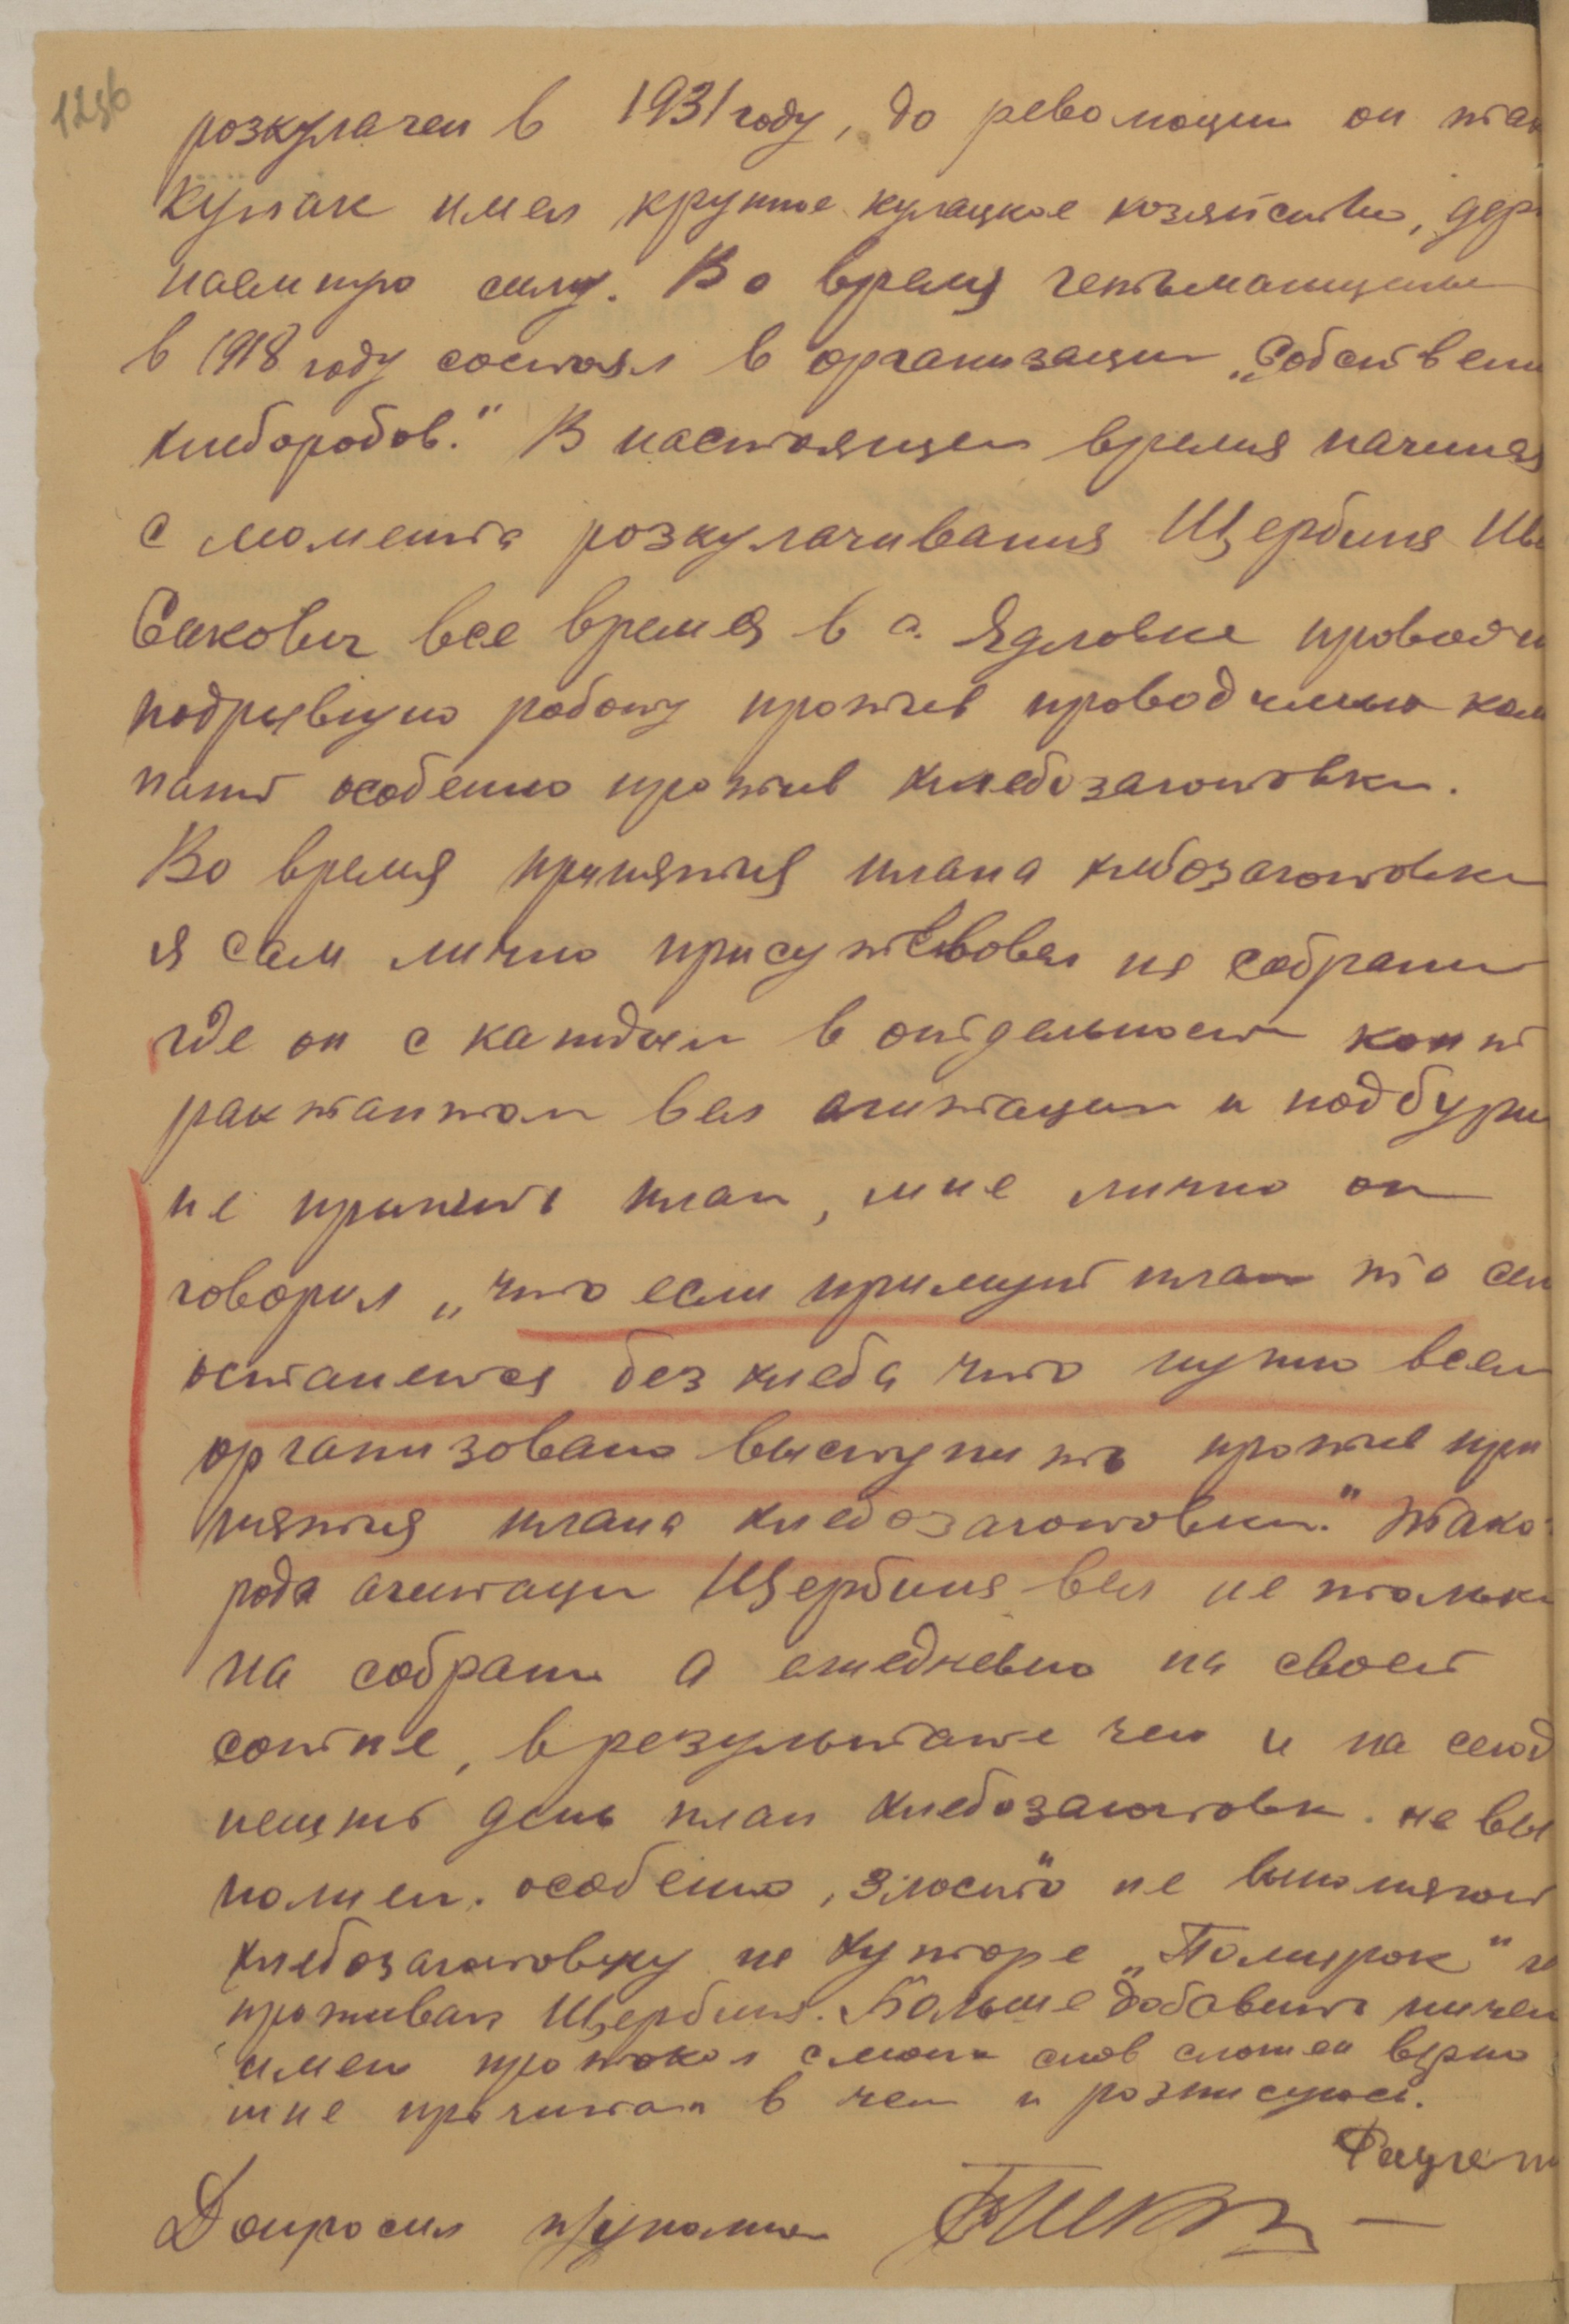 12зб
розкулачен в 1931 году, до революции он так
кулак имел крупное кулацкое хозяйство, дер
наемную силу. Во время гетьманщины
в 1918 году состоял в организации „Собствени
хлеборобов." В настоящем время начиная
с момента розкулачивания Щербина Ив
Сакович все время в с. Ядловке проводи
подрывную работу против проводимых кам
паний особенно против хлебозаготовки.
Во время принятия плана хлебозаготовки
я сам лично присутствовал на собрании
где он с каждым в отдельности конт
рактантом вел агитацию и подбури
не принять план, мне лично он
говорил „что если примут план то сел
останется без хлеба что нужно всем
организовано выступить против при
нятия плана хлебозаготовки." Тако
рода агитаци Щербина вел не только
на собрании а ежедневно на своей
сотне, в результате чего и на сегод
нешний день план хлебозаготовк. не вы
полнен. особенно „злосно" не выполняют
хлебозаготовку на хуторе „Полицрок" г
проживал Щербина. Больше добавить ничего
имею протокол с моих слов сложен верно
мне прочитан в чем и розписуюсь.
Допросил